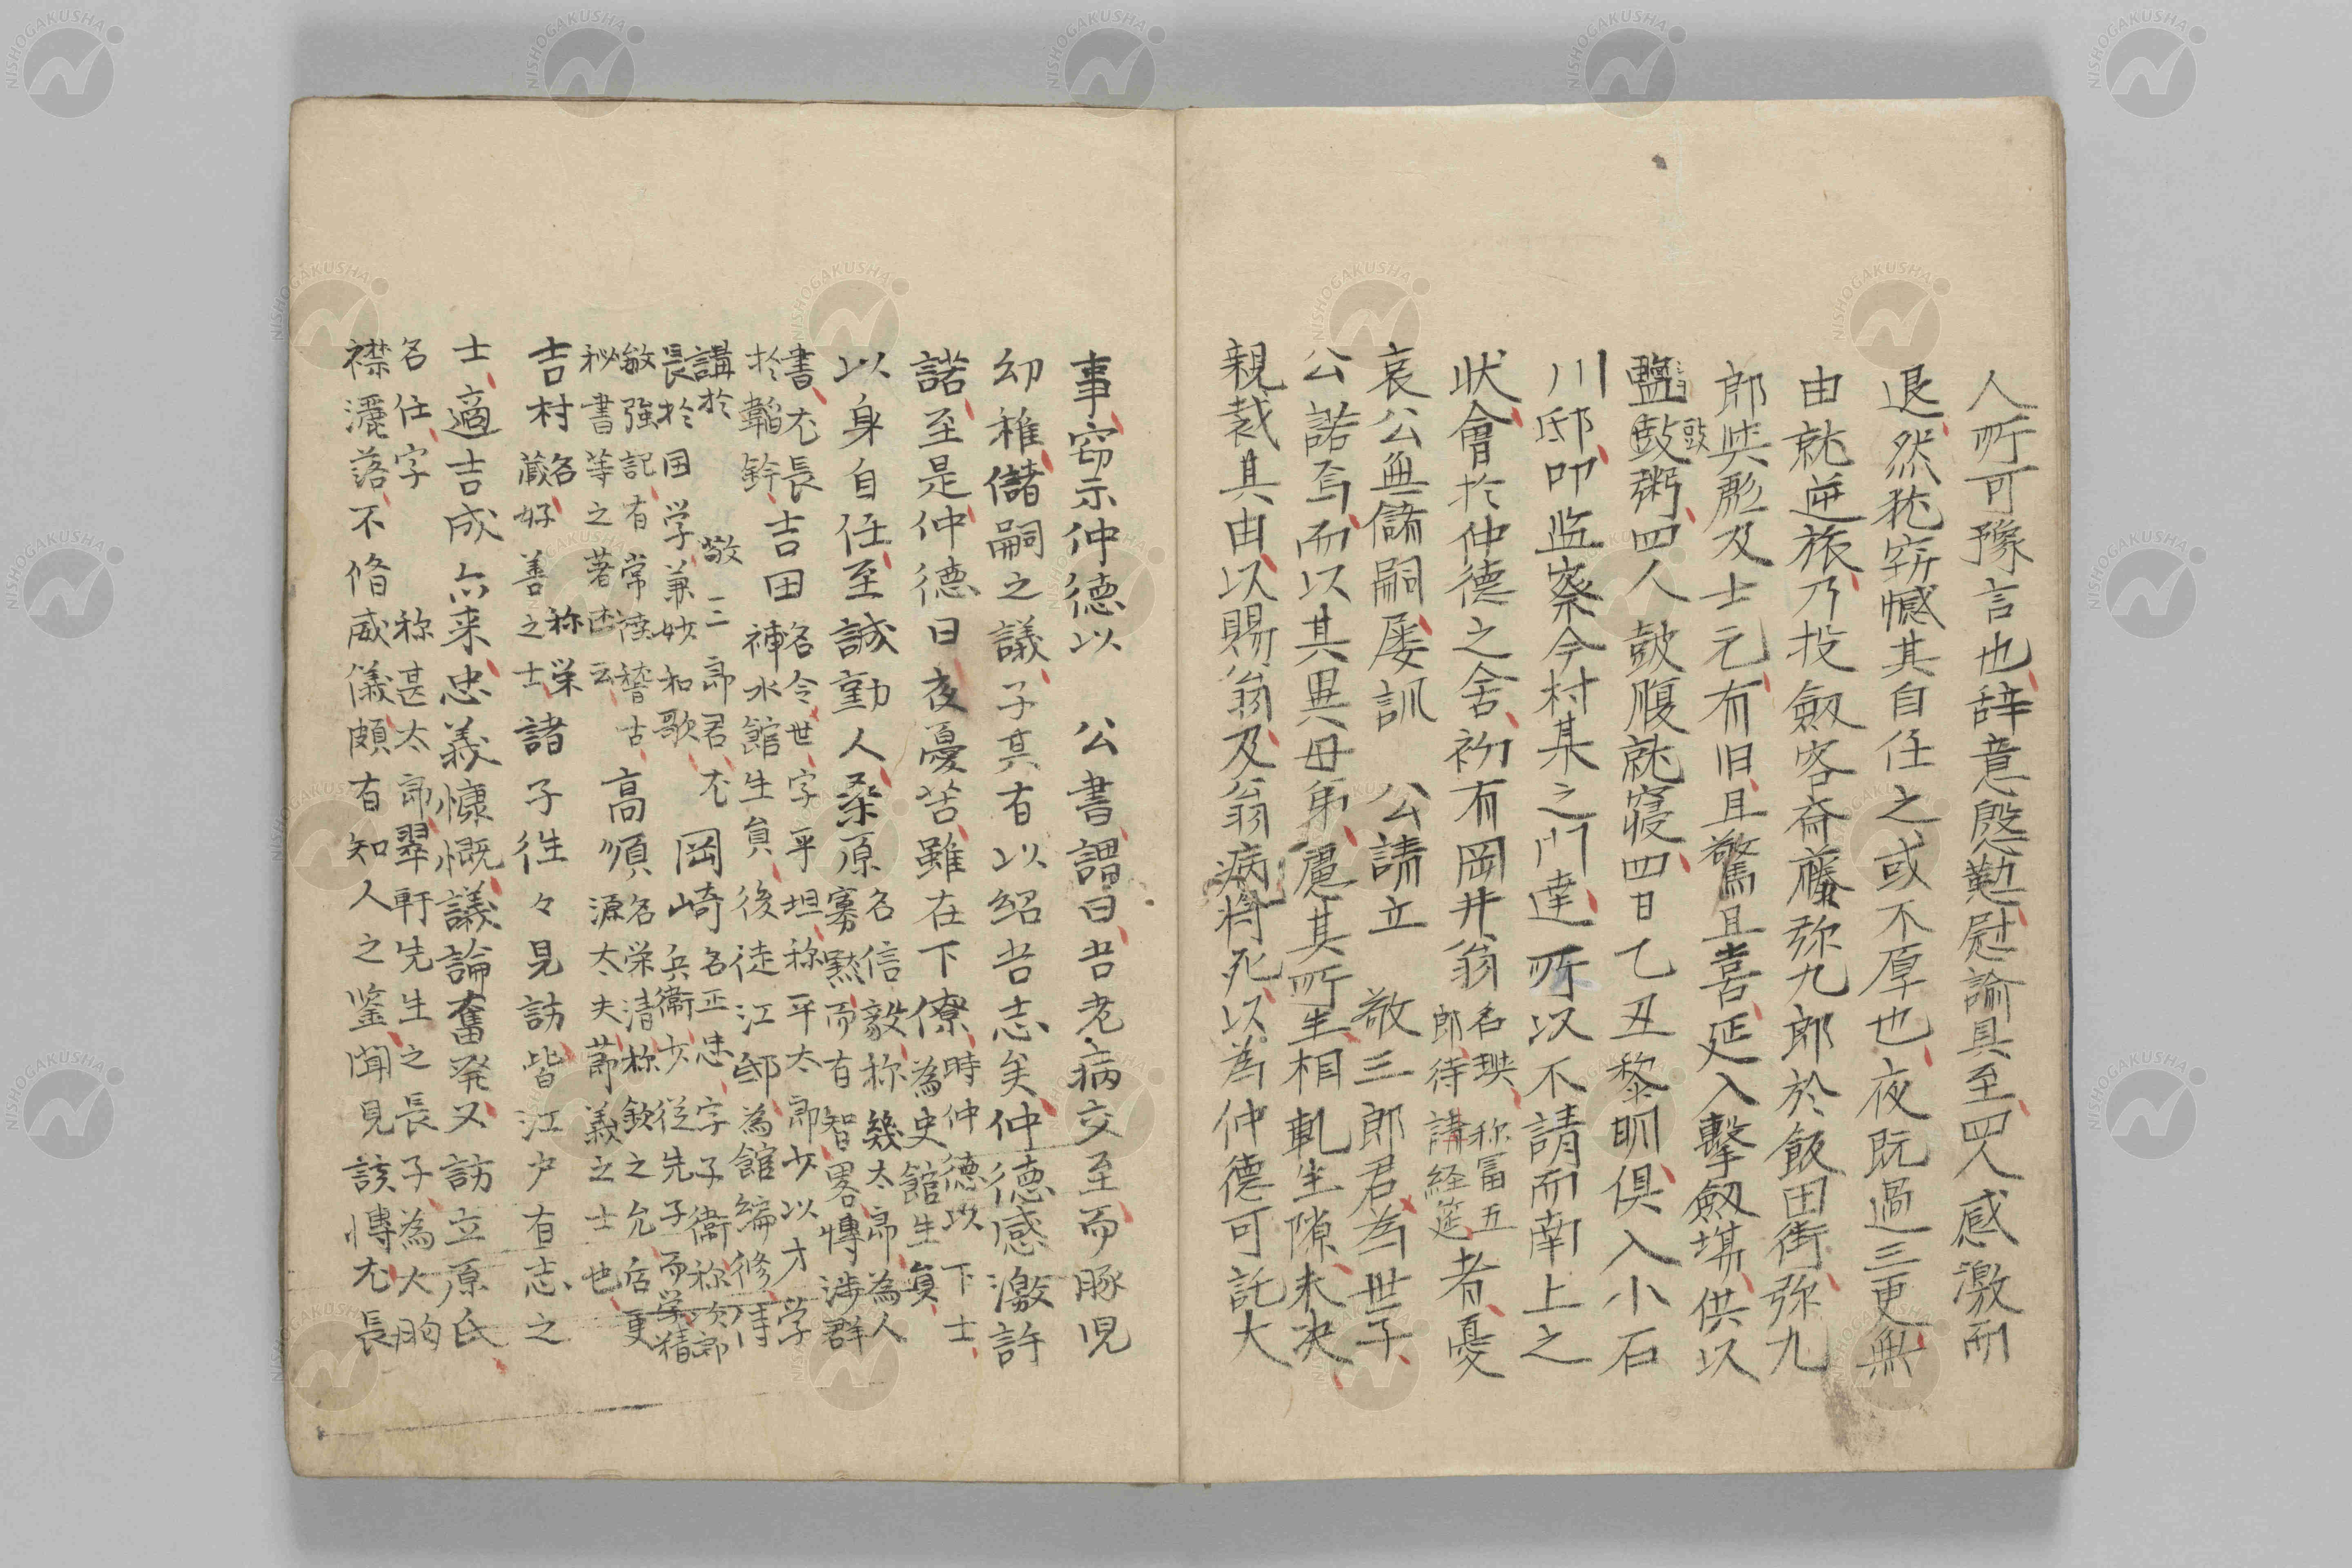 人所可豫言也辞意慇懃慰諭具至四人感激而
退然窃憾其自任之或不厚也夜既過三更無
由就逆旅乃投劔客斎藤弥九郎於飯田街弥九
郎与彪及士元有旧且驚且喜延入撃劔場供以
盬豉粥四人皷腹就寝四日乙丑黎明倶入小石
川邸叩監察今村某之門達所以不請而南上之
状會於仲徳之舎初有岡井翁名璵称冨五郎待講経筵者憂
哀公無儲嗣屡訓 公請立 敬三郎君為世子
公諾焉而以其異母弟慮其所生相軋生隙未决
親裁其由以賜翁及翁病将死以為仲徳可託大
事窃示仲徳以 公書謂曰吾老病交至而豚児
幼稚儲嗣之議子其有以紹吾志矣仲徳感激許
諾至是仲徳日夜憂苦雖在下僚時仲徳以下士為史館生員
以身自任至誠動人桑原名信毅称幾太郎為人寡黙而有智畧慱渉群
書尤長於韜鈐吉田名令世字平坦称平太郎少以才学補水館生員後徒江邸為館編修侍
講於 敬三郎君尤長於国学兼妙和歌岡崎名正忠字子衞称次郎兵衞少従先子而学精
敏強記有常陸稽古秘書等之著述云高須名栄清称欽之允后更源太夫節義之士也
吉村名蔵称栄好善之士諸子徃々見訪皆江戸有志之
士適吉成亦来忠義慷慨議論奮発又訪立原氏
名任字 称甚太郎翠軒先生之長子為人胸襟灑落不脩威儀頗有知人之鑒聞見該慱尤長